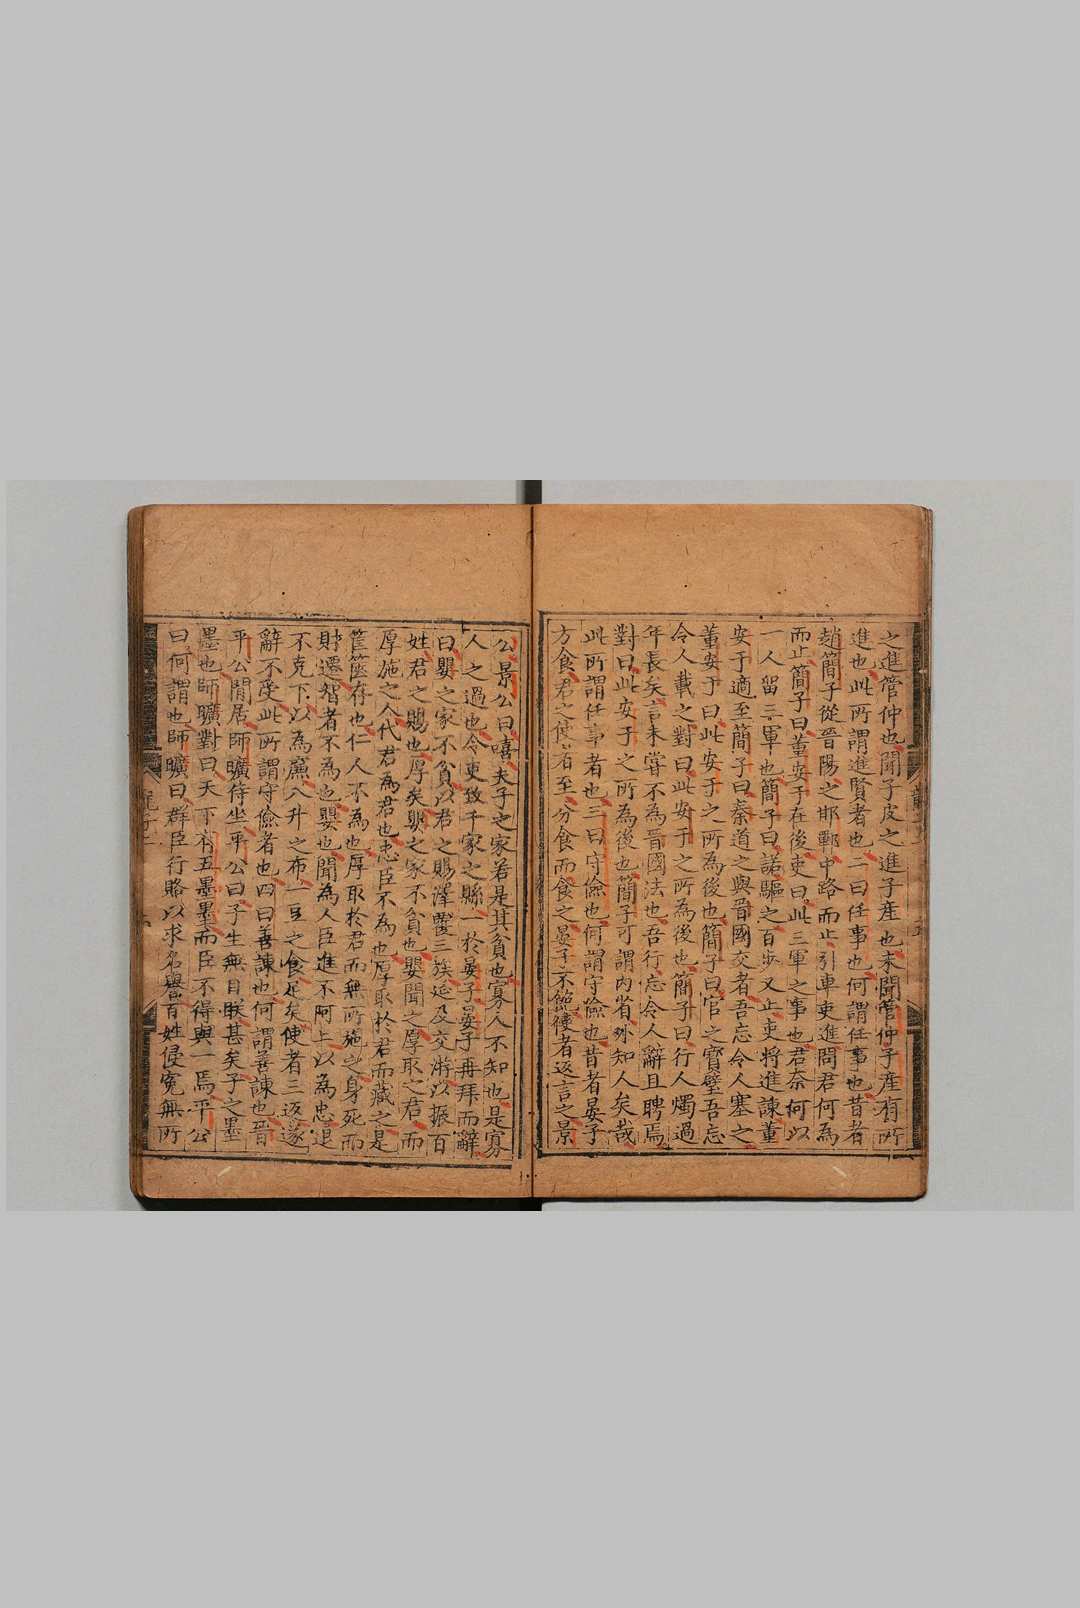 之進管仲也聞子皮之進子產也未聞管仲子產有所
進也此所謂進賢者也二曰任事也何謂任事也昔者
趙簡子從晉陽之邯鄲中路而止引車吏進問君何為
而止簡子曰董安于在後吏曰此三軍之事也君奈何以
一人留三軍也簡子曰諾驅之百步又止吏將進諫董
安于適至簡子曰秦道之與晉國交者吾忘令人塞之
董安于曰此安于之所為後也簡子曰官之寶璧吾忘
令人載之對曰此安于之所為後也簡子曰行人燭過
年長矣言未嘗不為晉國法也吾行忘令人辭且聘焉
對曰此安于之所為後也簡子可謂內省外知人矣哉
此所謂任事者也三曰守儉也何謂守儉也昔者晏子
方食君之使者至分食而食之晏子不飽使者返言之景
公景公曰嘻夫子之家若是其貧也寡人不知也是寡
人之過也令吏致千家之縣一於晏子晏子再拜而辭
曰嬰之家不貧以君之賜澤覆三族延及交游以振百
姓君之賜也厚矣嬰之家不貧也嬰聞之厚取之君而
厚施之人代君為君也忠臣不為也厚取於君而藏之是
筐篋存也仁人不為也厚取於君而無所施之身死而
財遷智者不為也嬰也聞為人臣進不阿上以為忠退
不克下以為廉八升之布一豆之食足矣使者三返遂
辭不受此所謂守儉者也四曰善諫也何謂善諫也晉
平公閒居師曠侍坐平公曰子生無目眹甚矣子之墨
墨也師曠對曰天下有五墨墨而臣不得與一焉平公
曰何謂也師曠曰群臣行賂以求名譽百姓侵冤無所